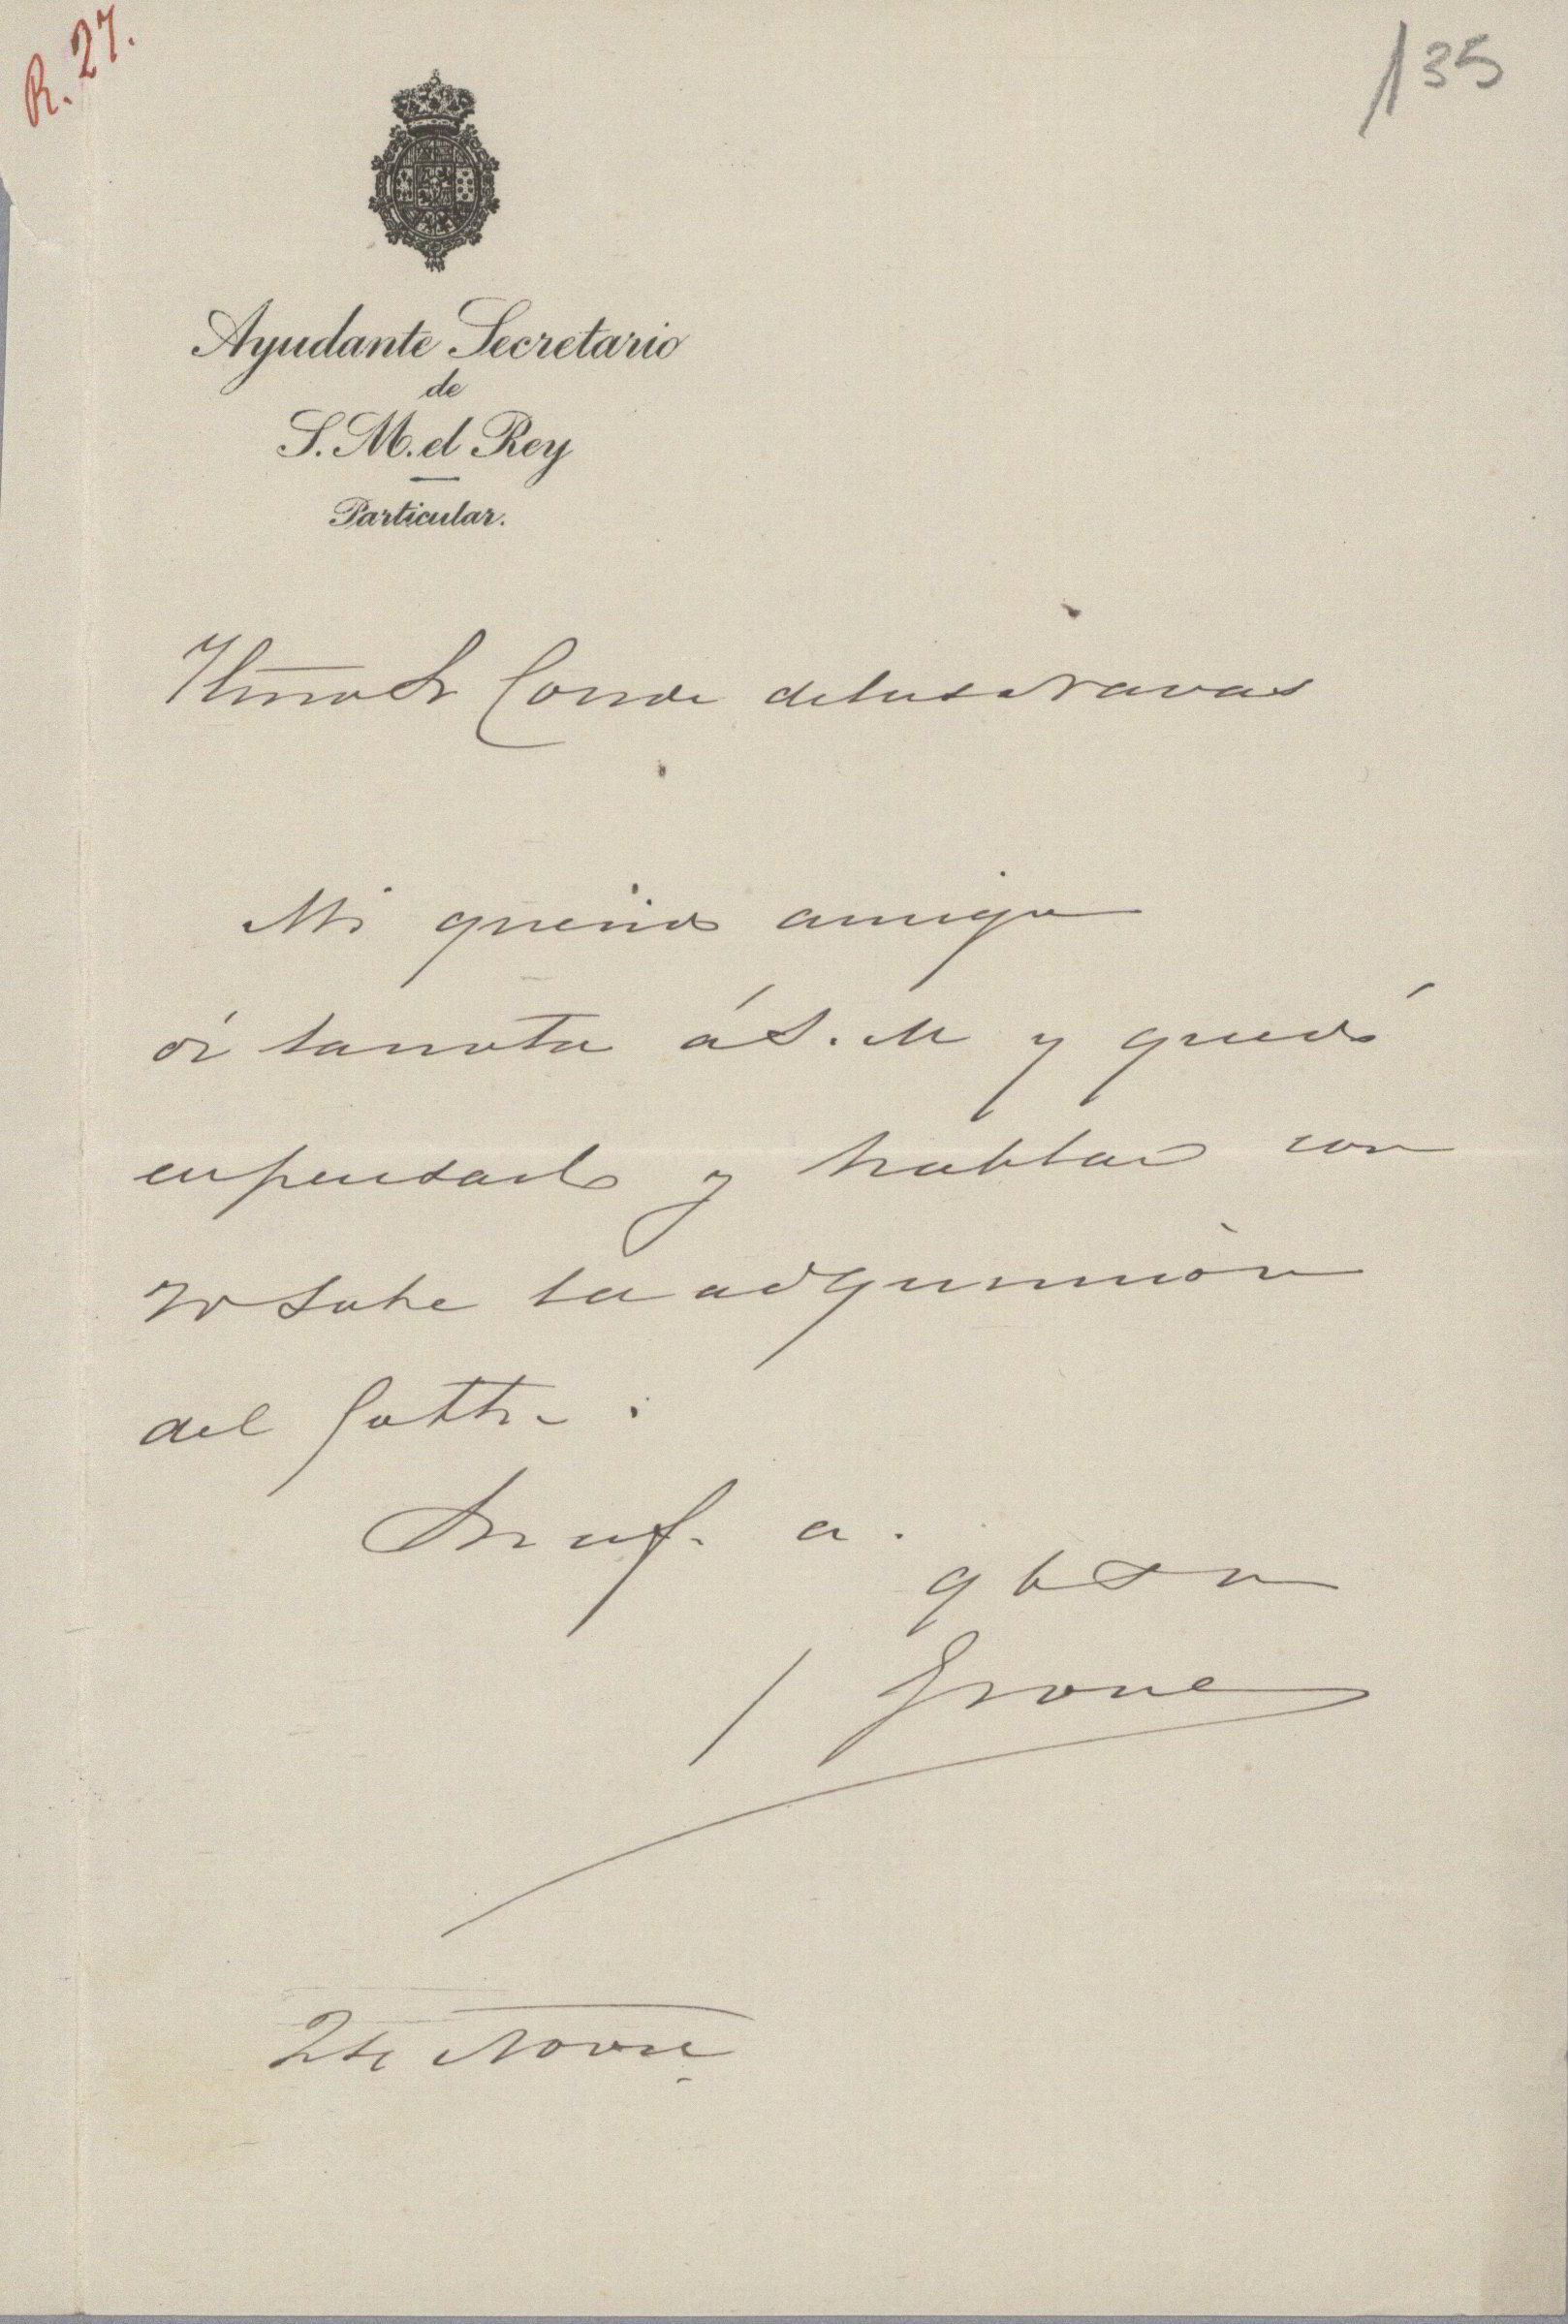 R. 27.
135
Ayudante Secretario
de
S. M. el Rey
Particular.
Ilmo Sr Conde de las Navas
Mi querido amigo
di la nota á S. M y quedó
en pensarlo y hablar con
V sobre la adquisición
del
Su af. a.
q b s m
24 Novre